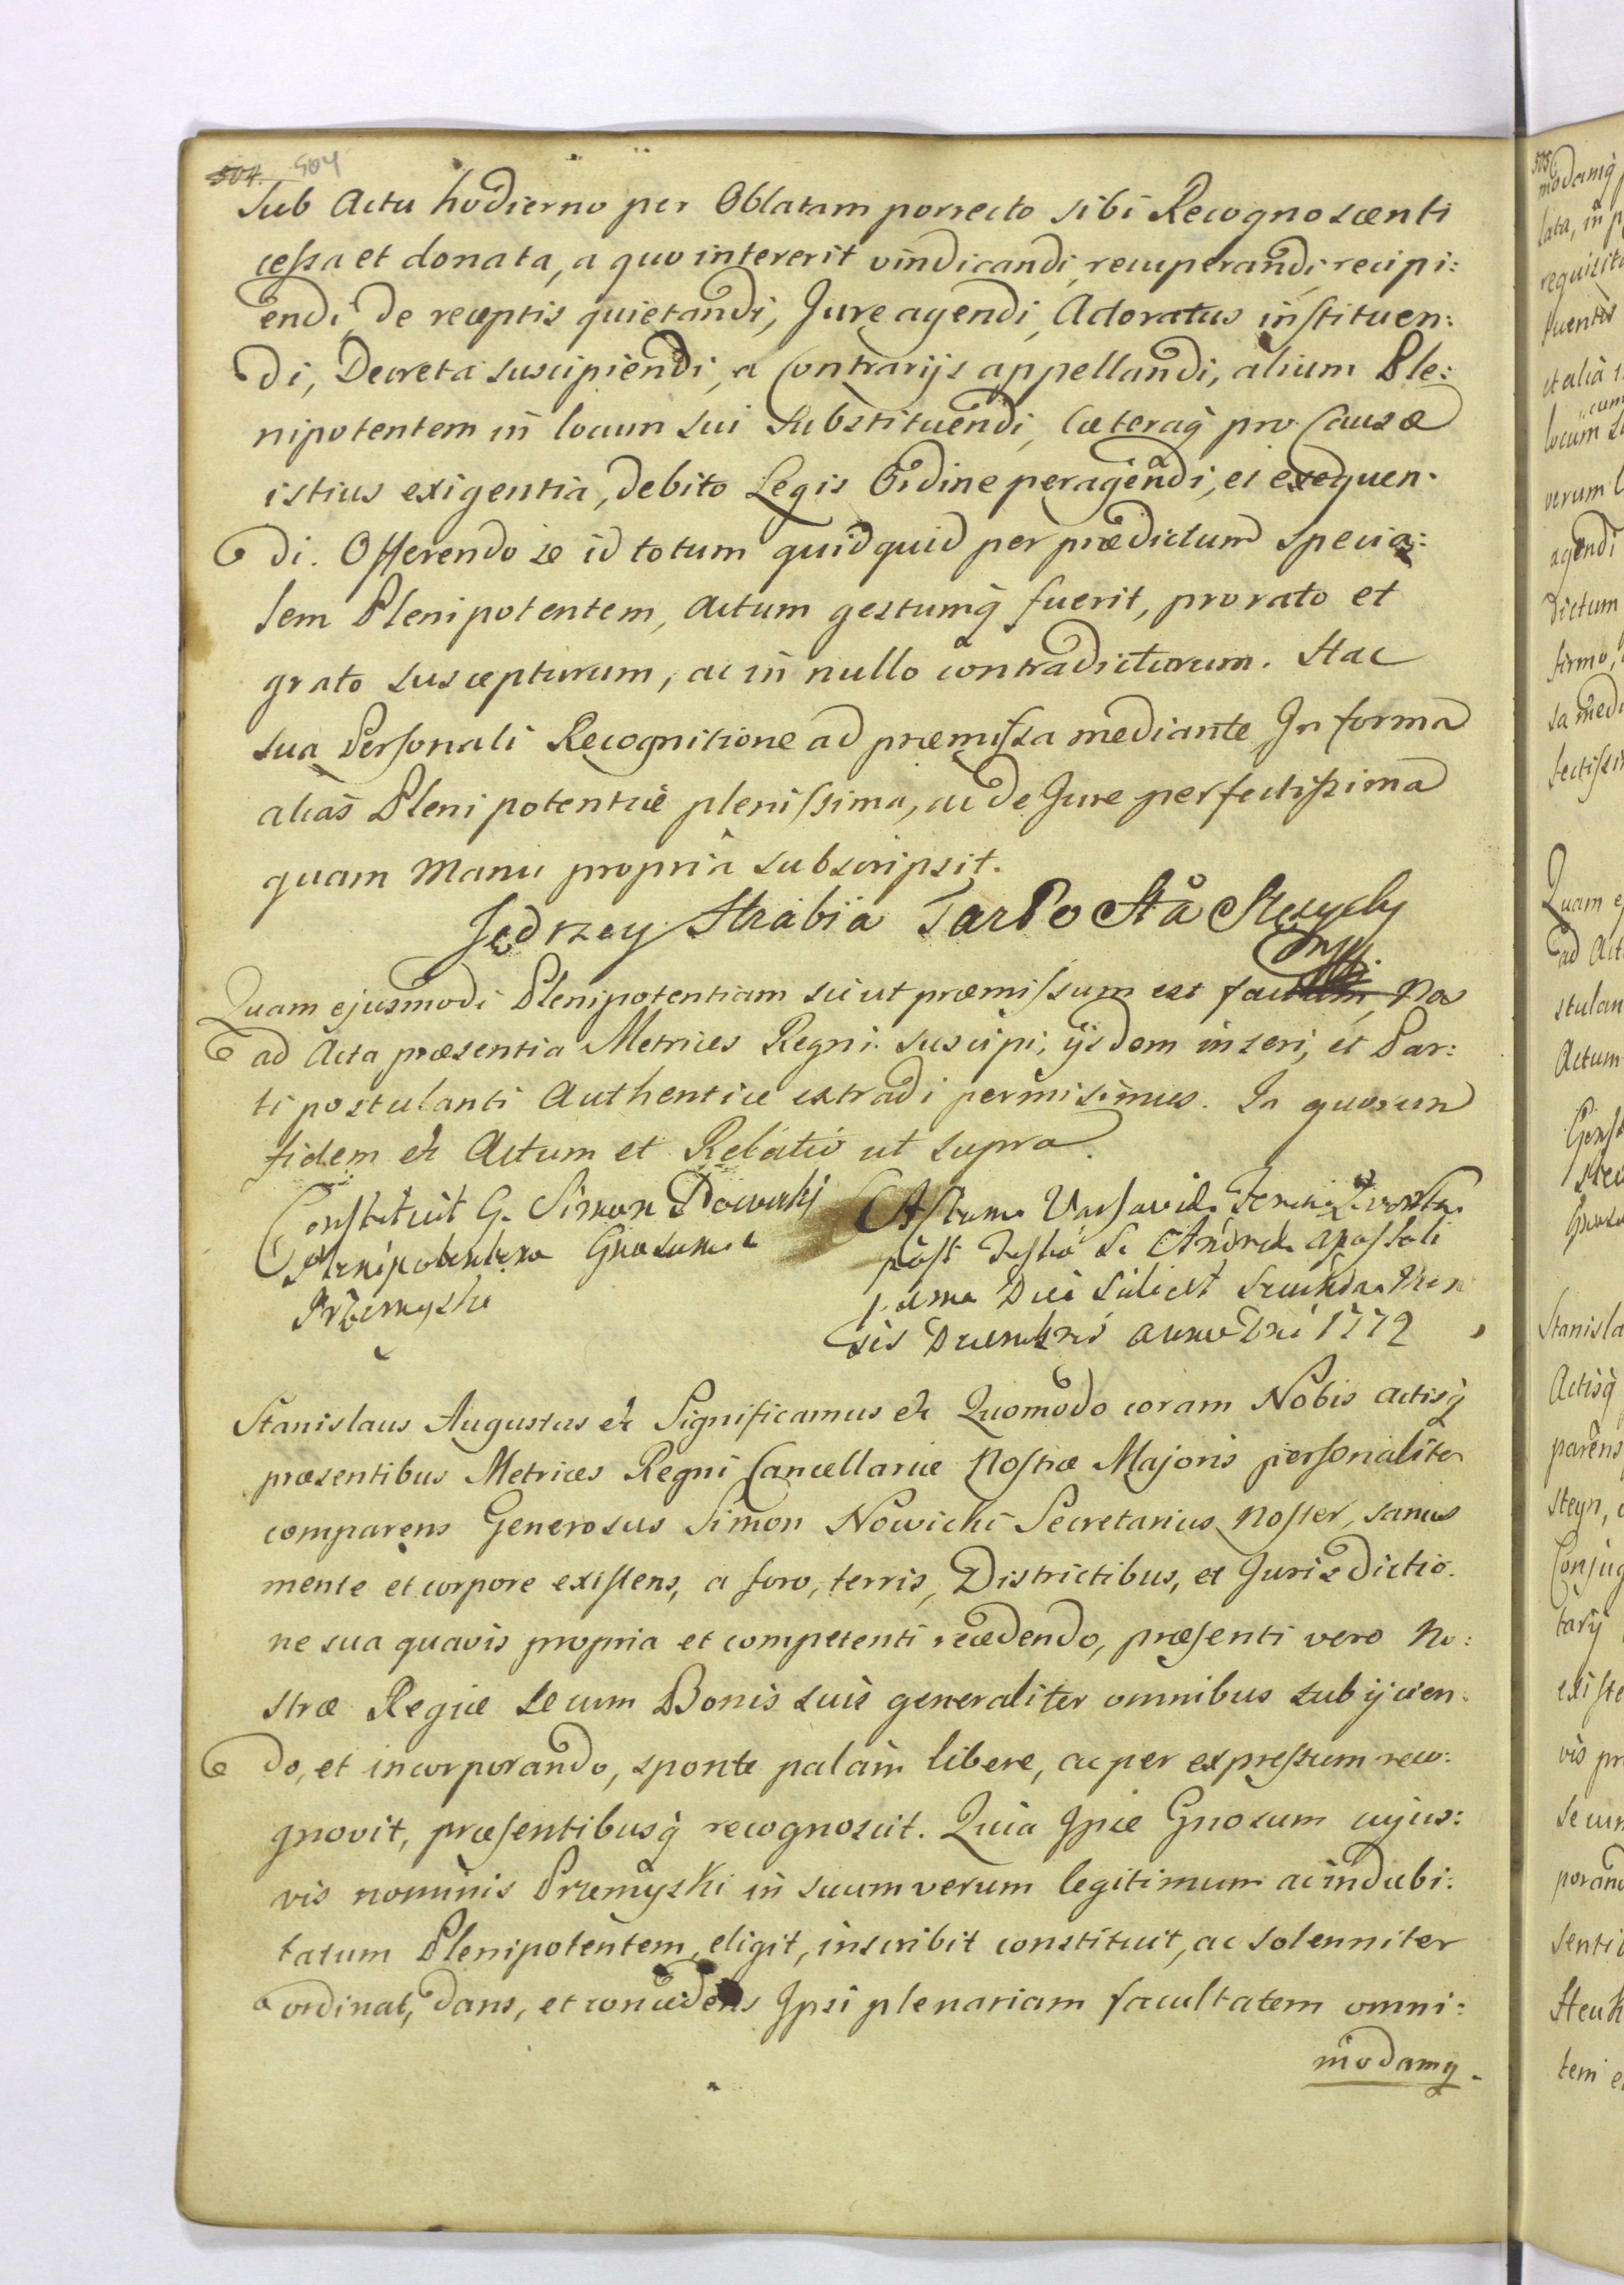 504. 504
Sub Actu hodierno per Oblatam porrecto sibi Recognoscenti
cessa et donata, a quo intererit vindicandi, recuperandi, recipi:
endi, De receptis quietandi, Jure agendi, Actoratus instituen:
di, Decreta suscipiendi, a Contrarijs appellandi, alium Ple:
nipotentem in locum sui Substituendi, Cæteraq pro Causæ
istius exigentia, debito Legis Ordine peragendi, et exequen:
di. Offerendo se id totum quidquid per prædictum specia:
lem Plenipotentem, Actum gestumq fuerit, pro rato et
grato suscepturum, ac in nullo contradicturum. Hac
sua Personali Recognitione ad præmissa mediante In forma
alias Plenipotentiæ plenissima, ac de Jure perfectissima
quam Manu propria subscripsit.
Jędrzey Hrabia
Quam ejusmodi Plenipotentiam sicut præmissum est Nos
ad Acta præsentia Metrices Regni suscipi, ijsdem inseri, et Par:
ti postulanti Authentice extradi permisimus. In quorum
fidem etc Actum et Relatio ut supra.
Constituit G. Simon Nowicki
Plenipotentem Gnosum
Przemyski
Actum Varsaviæ Feria
post Festum S. Andreæ Apostoli
proxima Die scilicet secunda Men
sis Decembris Anno Dni 1772
Stanislaus Augustus etc Significamus etc Quomodo coram Nobis actisq
præsentibus Metrices Regni Cancellariæ Nostræ Majoris personaliter
comparens Generosus Simon Nowicki Secretarius Noster, sanus
mente et corpore existens, a foro, terris, Districtibus, et Jurisdictio:
ne sua quavis propria et competenti recedendo, præsenti vero No:
stræ Regiæ se cum Bonis suis generaliter omnibus subijcien:
do, et incorporando, sponte palam libere, ac per expressum reco:
gnovit, præsentibusq recognoscit. Quia Ipse Gnosum cujus:
vis nominis Przemyski in suum verum legitimum ac indubi:
tatum Plenipotentem, eligit, inscribit constituit, ac solenniter
ordinat, dans, et concedens Ipsi plenariam facultatem omni:
modamq